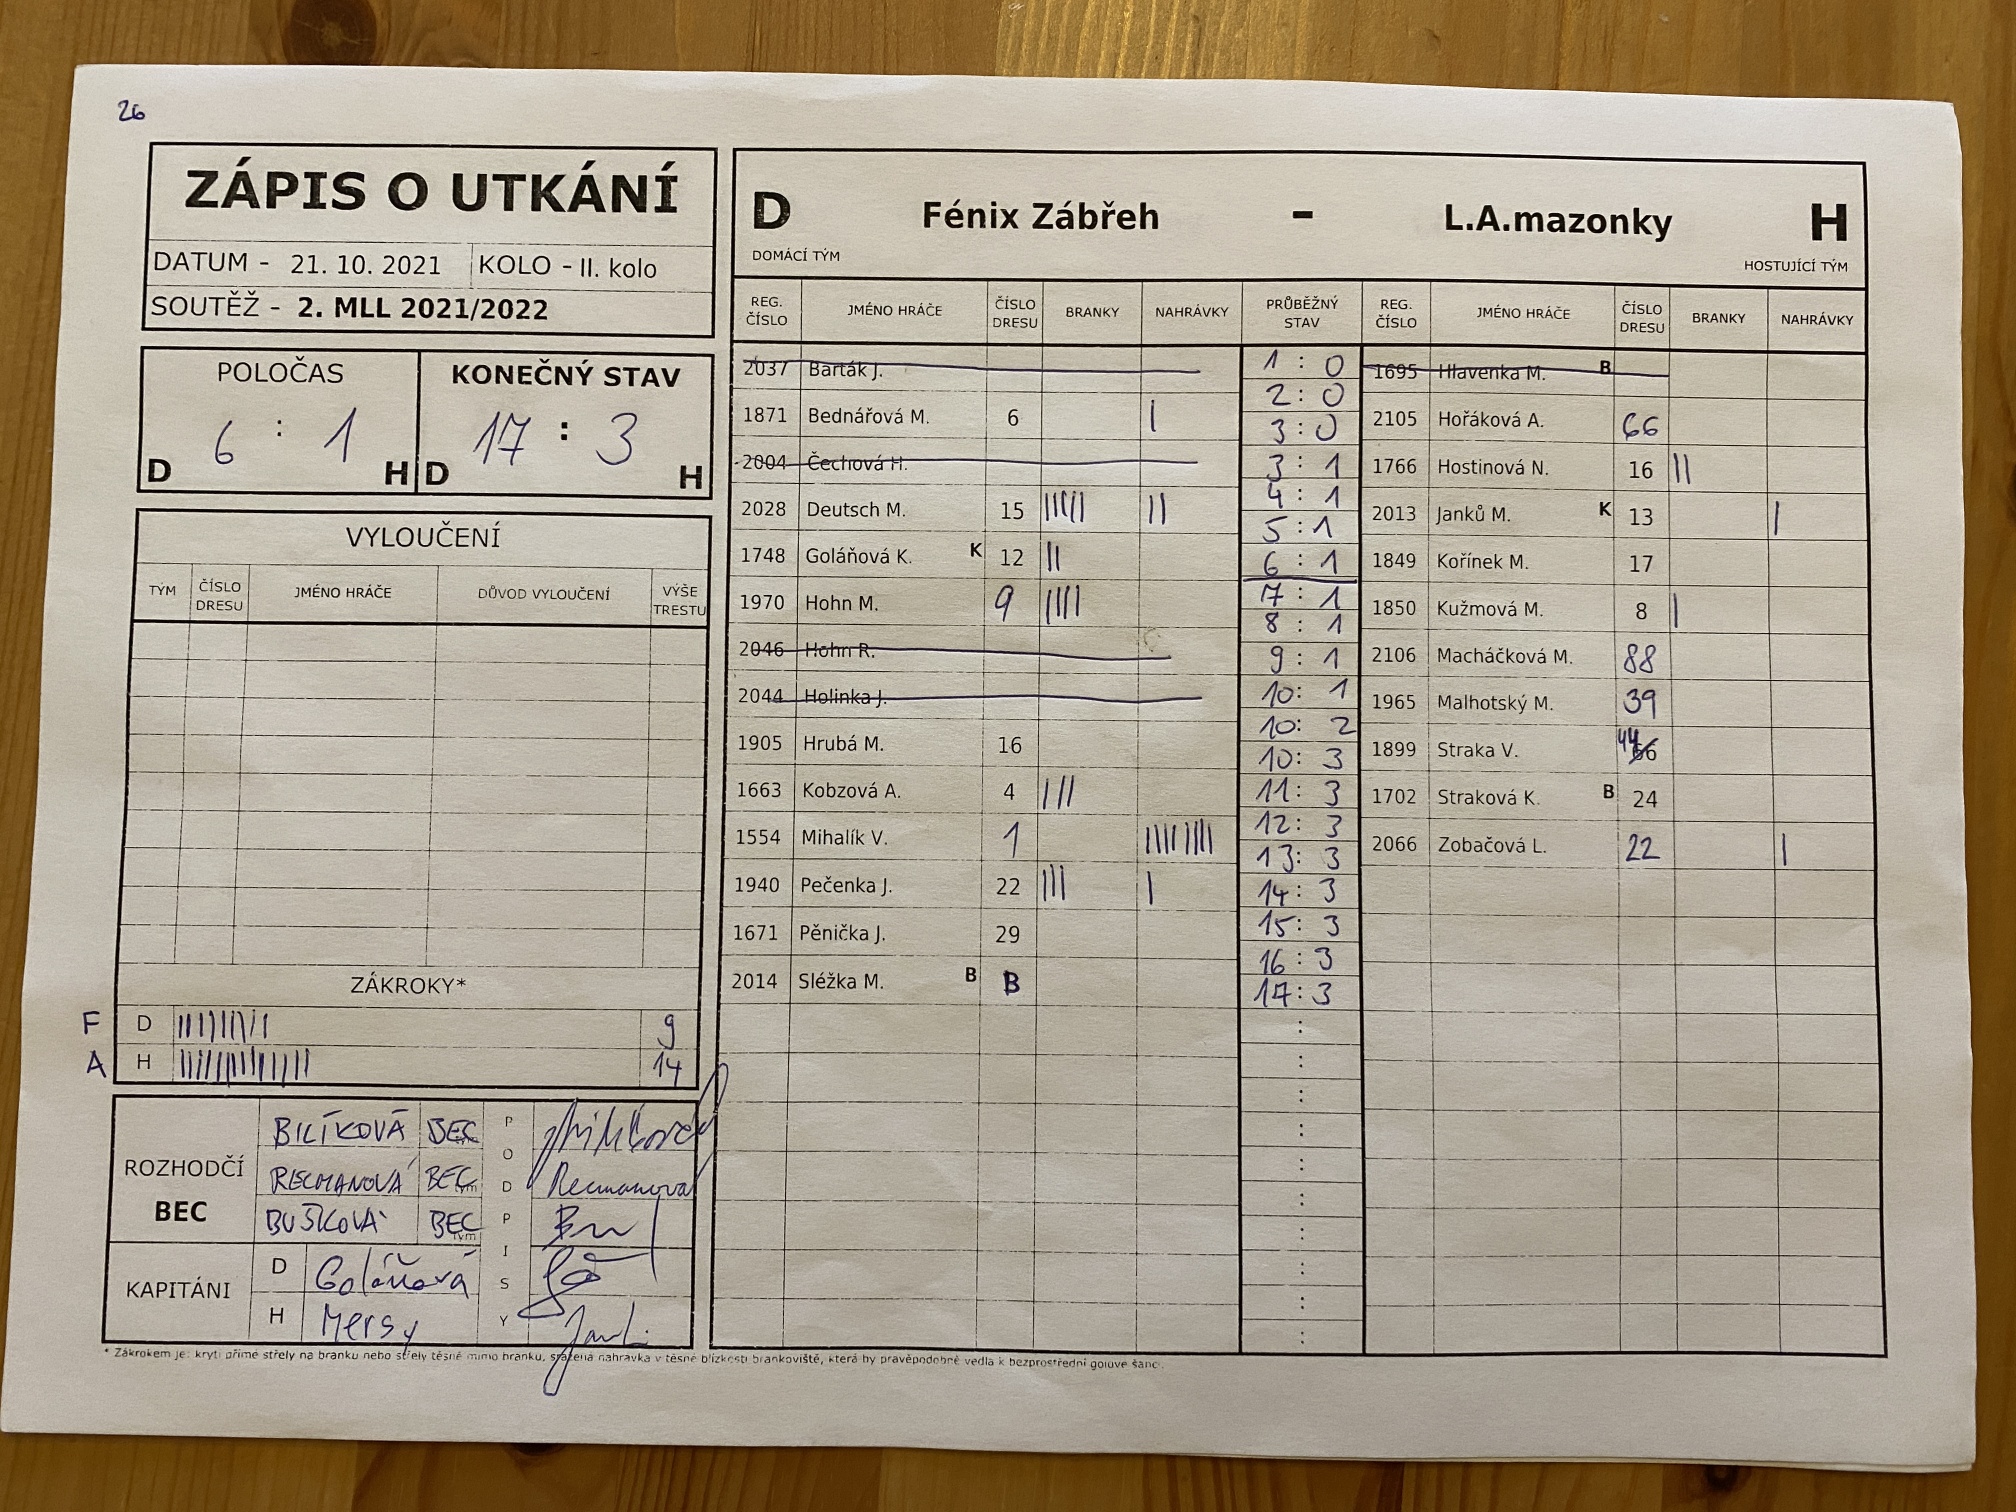 26
ZÁPIS O UTKÁNÍ
DATUM - 21. 10. 2021 KOLO - II. kolo
SOUTĚŽ - 2. MLL 2021/2022
POLOČAS KONEČNÝ STAV
6 : 1 17 : 3
D H D H
VYLOUČENÍ
TÝM ČÍSLO DRESU JMÉNO HRÁČE DŮVOD VYLOUČENÍ VÝŠE TRESTU
ZÁKROKY*
F D ||||||||| 9
A H |||||||||||||| 14
ROZHODČÍ
BEC
BILÍKOVÁ BEC
RECMANOVÁ BEC tým Recmanova
BUŠKOVÁ BEC tým
PODPISY
KAPITÁNI
D Goláňová
H Mersy
D Fénix Zábřeh - L.A.mazonky H
DOMÁCÍ TÝM HOSTUJÍCÍ TÝM
REG. ČÍSLO JMÉNO HRÁČE ČÍSLO DRESU BRANKY NAHRÁVKY PRŮBĚŽNÝ STAV REG. ČÍSLO JMÉNO HRÁČE ČÍSLO DRESU BRANKY NAHRÁVKY
2037 Barták J.
1871 Bednářová M. 6 |
2004 Čechová H.
2028 Deutsch M. 15 ||||| ||
1748 Goláňová K. K 12 ||
1970 Hohn M. 9 ||||
2046 Hohn R.
2044 Holinka J.
1905 Hrubá M. 16
1663 Kobzová A. 4 |||
1554 Mihalík V. 1 ||||||||
1940 Pečenka J. 22 ||| |
1671 Pěnička J. 29
2014 Sléžka M. B B
1 : 0
2 : 0
3 : 0
3 : 1
4 : 1
5 : 1
6 : 1
7 : 1
8 : 1
9 : 1
10 : 1
10 : 2
10 : 3
11 : 3
12 : 3
13 : 3
14 : 3
15 : 3
16 : 3
17 : 3
1695 Hlavenka M. B
2105 Hořáková A. 66
1766 Hostinová N. 16 ||
2013 Janků M. K 13 |
1849 Kořínek M. 17
1850 Kužmová M. 8 |
2106 Macháčková M. 88
1965 Malhotský M. 39
1899 Straka V. 44
1702 Straková K. B 24
2066 Zobačová L. 22 |
* Zákrokem je: krytí přímé střely na branku nebo střely těsně mimo branku, sražená nahrávka v těsné blízkosti brankoviště, která by pravěpodobně vedla k bezprostřední gólové šanci.